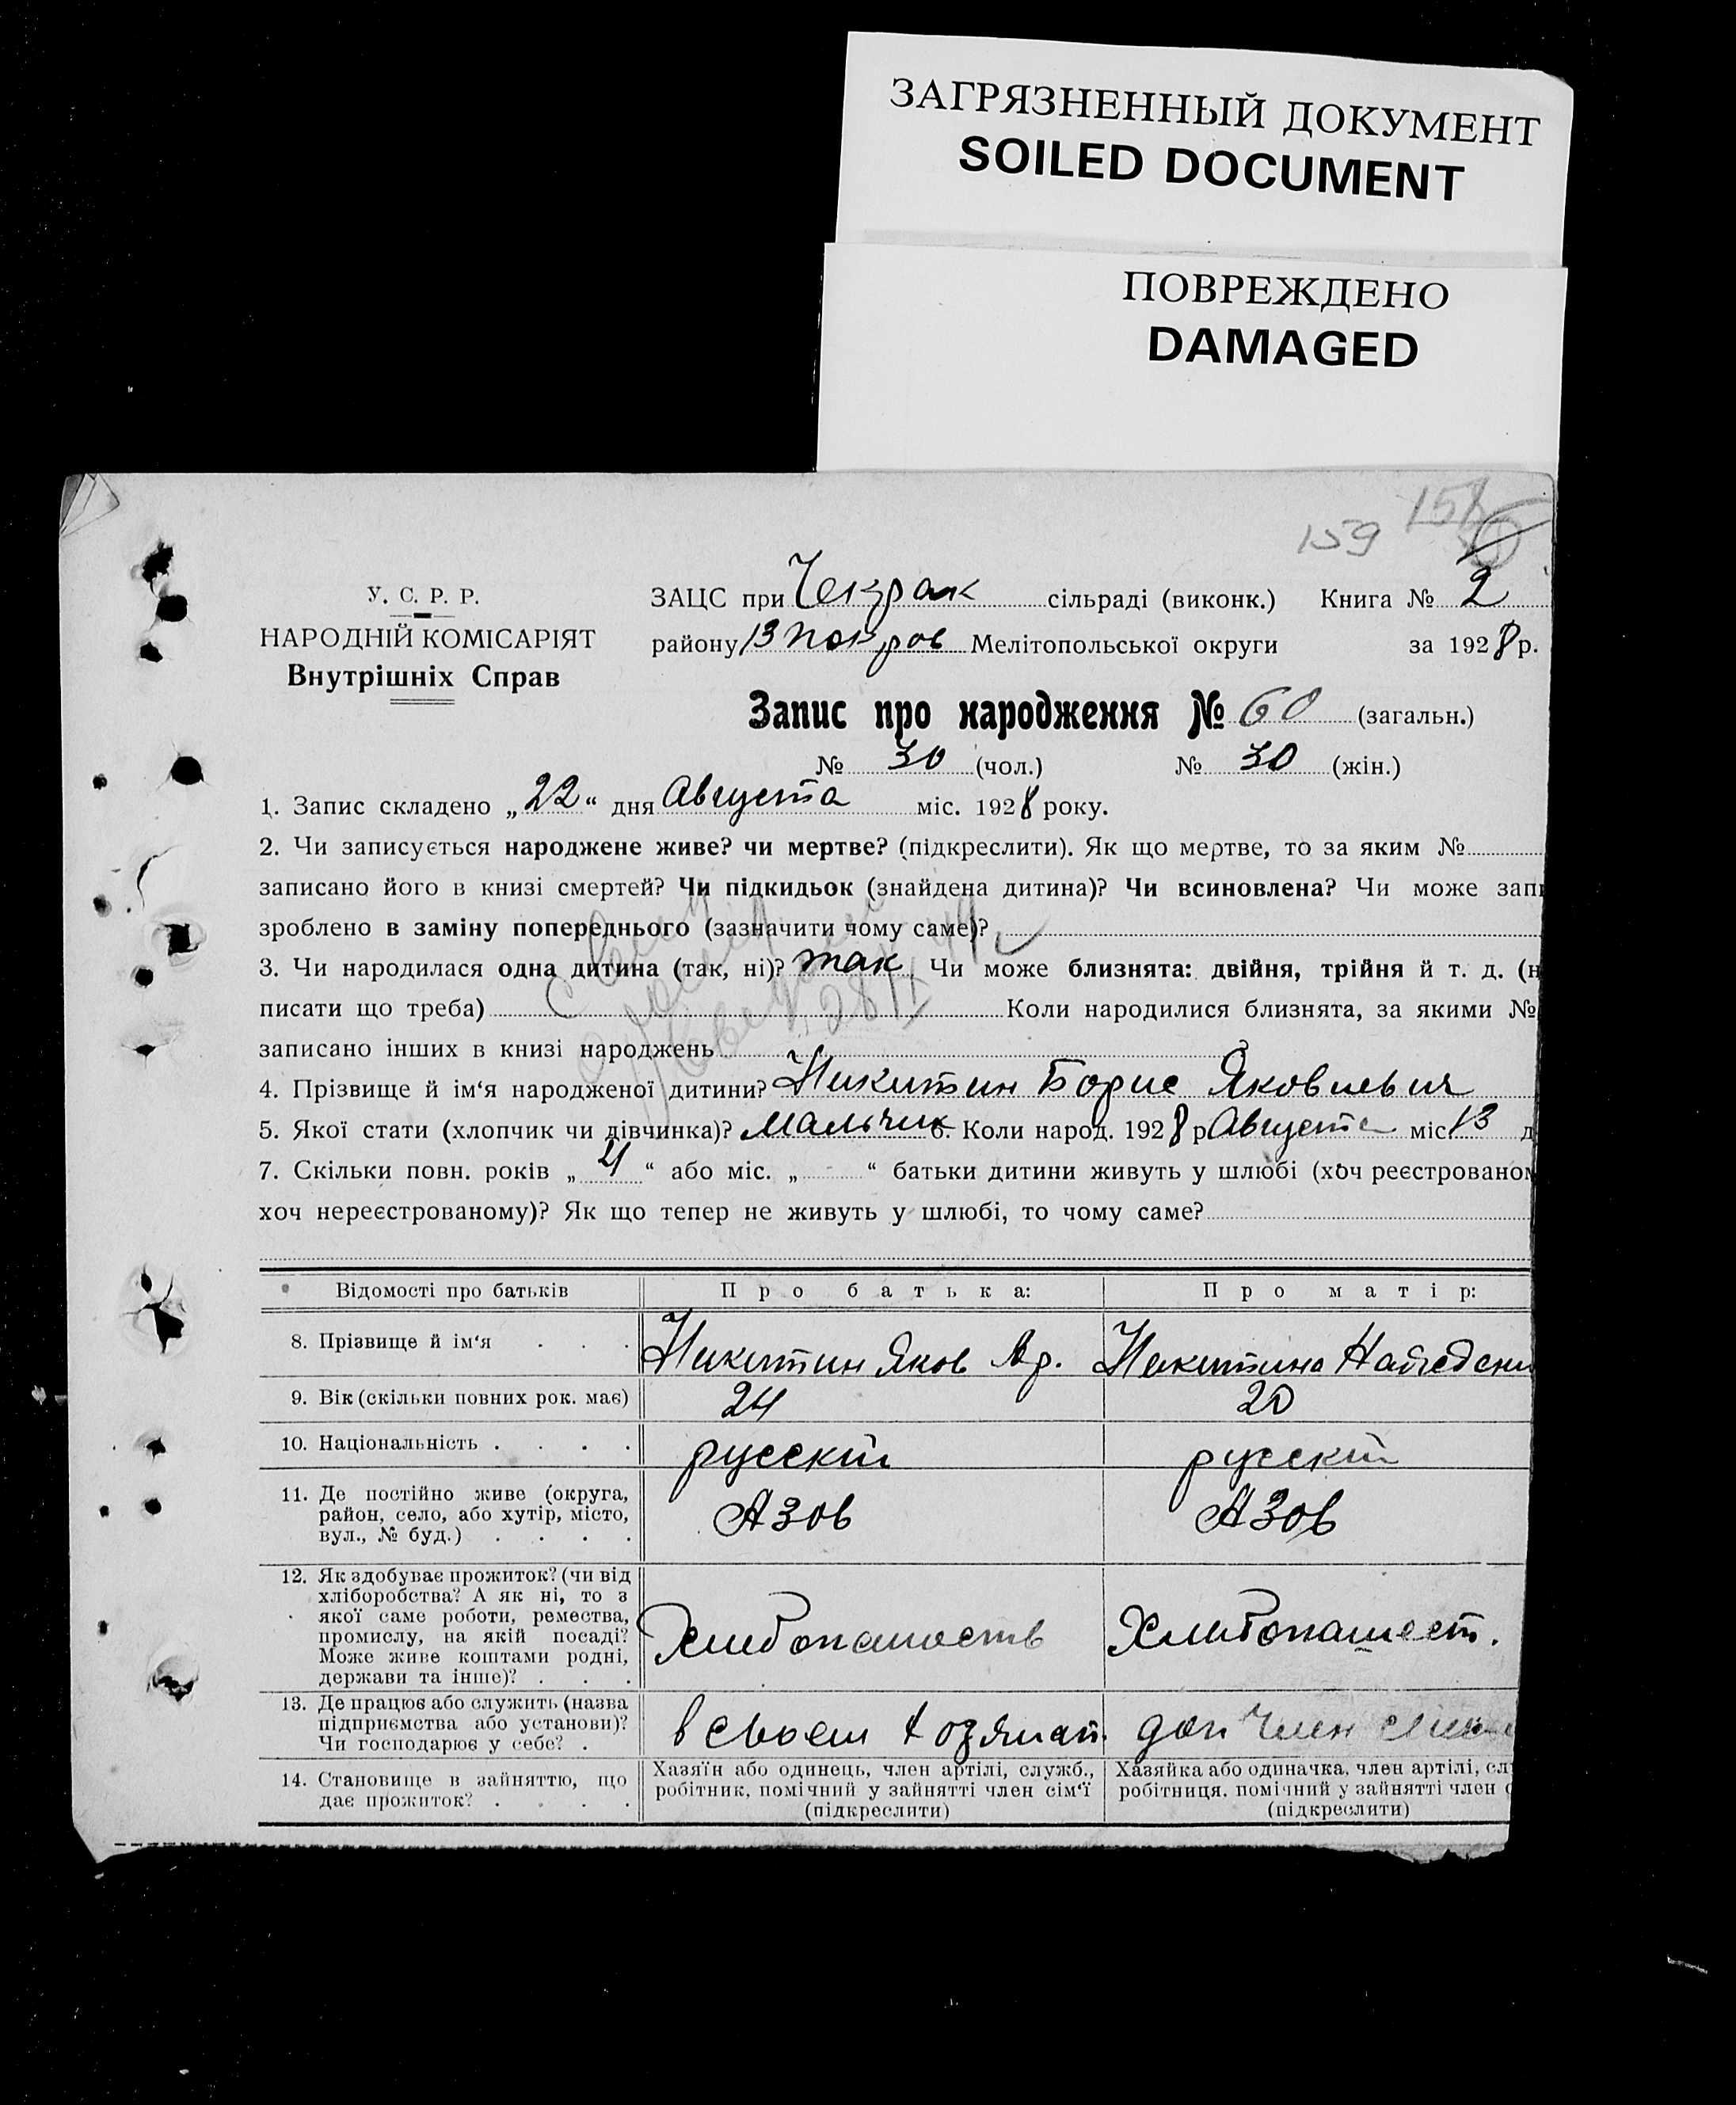 ЗАГРЯЗНЕННЫЙ ДОКУМЕНТ
SOILED DOCUMENT
ПОВРЕЖДЕНО
DAMAGED
159
У. С. Р. Р.
НАРОДНІЙ КОМІСАРІЯТ
Внутрішніх Справ
ЗАЦС при Чекрак сільраді (виконк.) Книга № 2
району Мелітопольської округи за 1928 р.
Запис про народження № 60 (загальн.)
№ 30 (чол.) № 30 (жін.)
1. Запис складено „22“ дня Августа міс. 1928 року.
2. Чи записується народжене живе? чи мертве? (підкреслити). Як що мертве, то за яким №
записано його в книзі смертей? Чи підкидьок (знайдена дитина)? Чи всиновлена? Чи може зап
зроблено в заміну попереднього (зазначити чому саме)?
3. Чи народилася одна дитина (так, ні)? так Чи може близнята: двійня, трійня й т. д. (н
писати що треба) Коли народилися близнята, за якими №
записано інших в книзі народжень
4. Прізвище й ім‘я народженої дитини? Никитин Борис Яковлевич
5. Якої стати (хлопчик чи дівчинка)? Мальчик 6. Коли народ. 1928 р Августа міс 13 д
7. Скільки повн. років „4“ або міс. „ “ батьки дитини живуть у шлюбі (хоч реєстрованом
хоч нереєстрованому)? Як що тепер не живуть у шлюбі, то чому саме?
Відомості про батьків Про батька: Про матір:
8. Прізвище й ім‘я Никитин Яков Никитина
9. Вік (скільки повних рок. має) 24 20
10. Національність русский русский
11. Де постійно живе (округа,
район, село, або хутір, місто,
вул., № буд.) Азов Азов
12. Як здобуває прожиток? (чи від
хліборобства? А як ні, то з
якої саме роботи, ремества,
промислу, на якій посаді?
Може живе коштами родні,
держави та інше)? Хлибопашеств Хлибопашест.
13. Де працює або служить (назва
підприємства або установи)?
Чи господарює у себе? в своем член
14. Становище в зайняттю, що
дає прожиток?
Хазяїн або одинець, член артілі, служб.,
робітник, помічний у зайнятті член сім‘ї
(підкреслити)
Хазяйка або одиначка, член артілі, сл
робітниця, помічний у зайнятті член с
(підкреслити)